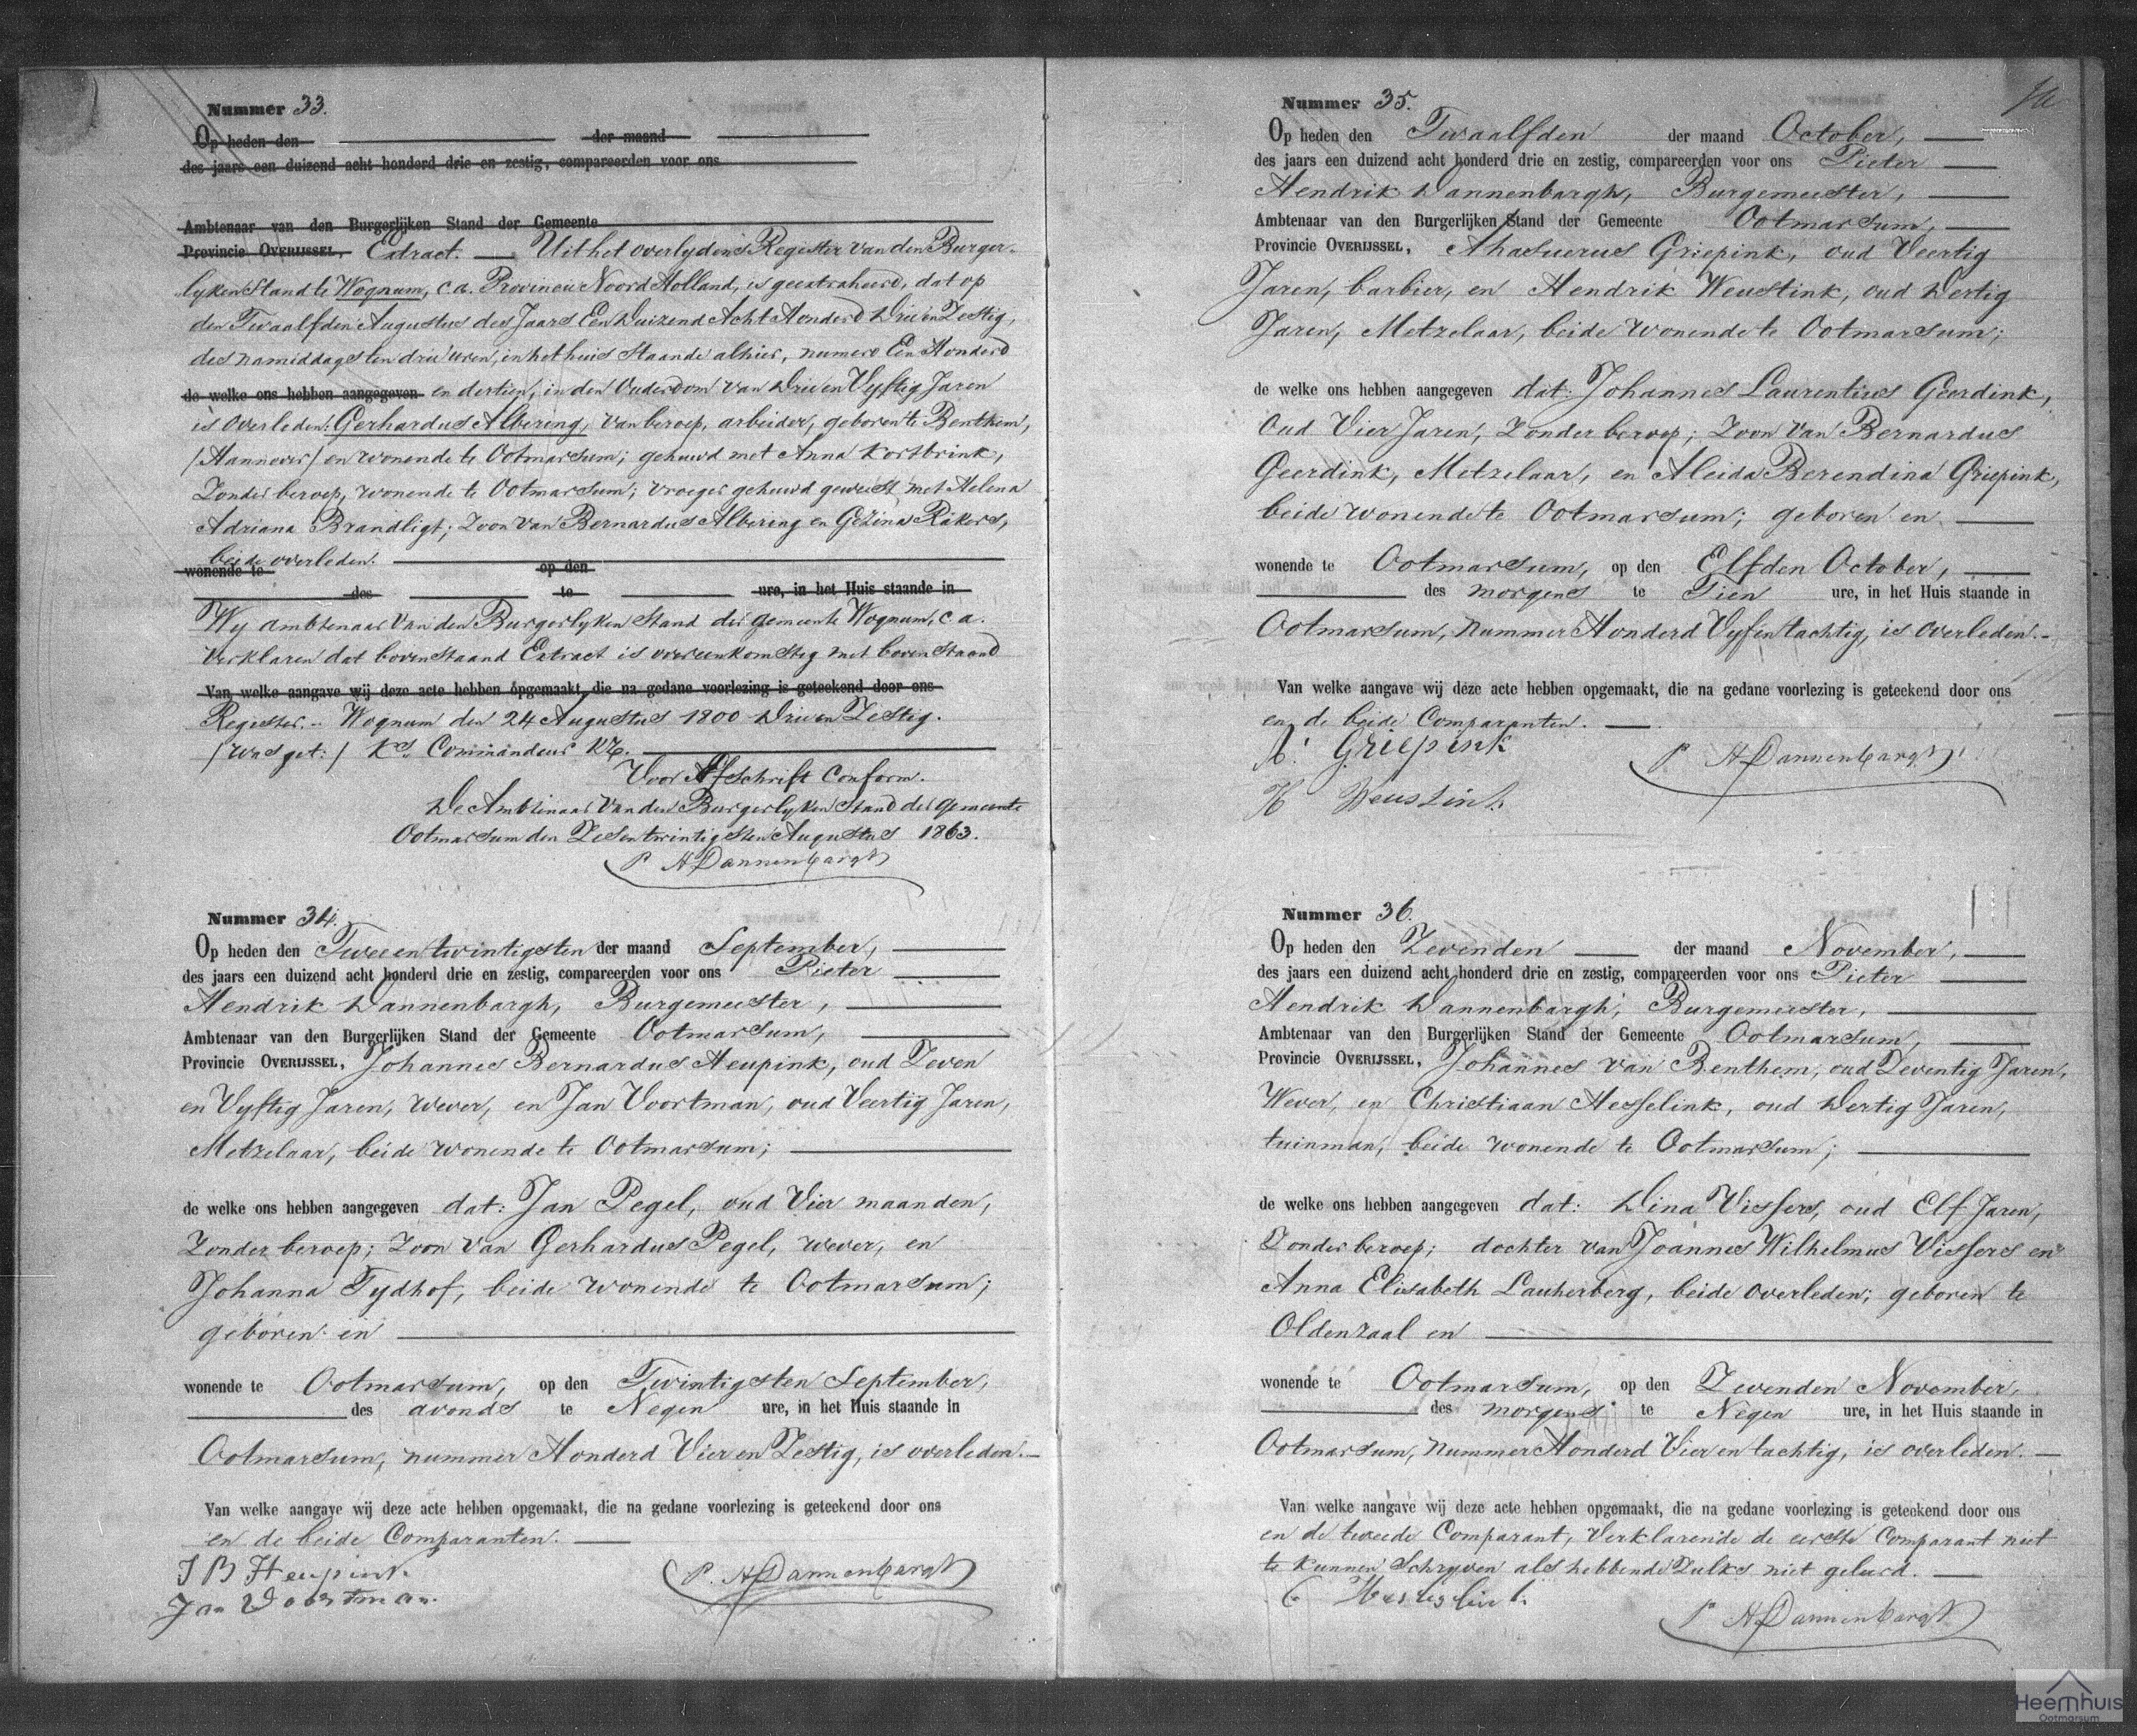 Nummer 33.
Op heden den der maand
des jaars een duizend acht honderd drie en zestig, compareerden voor ons
Ambtenaar van den Burgerlijken Stand der Gemeente
Provincie OVERIJSSEL, Extract. Uit het overlydens Register van den Burger-
lyken Stand te Wognum, c.a. Provincie Noord Holland, is geextraheerd, dat op
den Twaalfden Augustus des Jaars Een Duizend Acht Honderd Drie en Zestig,
des namiddags ten drie uren, in het huis staande alhier, numero Een Honderd
de welke ons hebben aangegeven en dertien, in den Ouderdom van Drie en Vyftig Jaren
is Overleden: Gerhardus Albering, van beroep, arbeider, geboren te Benthem,
/Hannover/ en wonende te Ootmarsum; gehuwd met Anna Korsbrink,
Zonder beroep, wonende te Ootmarsum; vroeger gehuwd geweest met Helena
Adriana Brandligt; Zoon van Bernardus Albering en Gezina Rakers,
beide overleden.
wonende te op den
des te ure, in het Huis staande in
Wy ambtenaar van den Burgerlyken Stand der gemeente Wognum, c.a.
verklaren dat bovenstaand Extract is overeenkomstig met bovenstaand
Van welke aangave wij deze acte hebben opgemaakt, die na gedane voorlezing is geteekend door ons
Register. - Wognum den 24 Augustus 1800 Drie en Zestig.
/was get:/ Ks. Commandeur Kz.
Voor Afschrift Conform.
De Ambtenaar van den Burgerlyken Stand der gemeente
Ootmarsum den Zesentwintigsten Augustus 1863.
P H Dannenbargh
Nummer 34.
Op heden den Twee en twintigsten der maand September,
des jaars een duizend acht honderd drie en zestig, compareerden voor ons Pieter
Hendrik Dannenbargh, Burgemeester,
Ambtenaar van den Burgerlijken Stand der Gemeente Ootmarsum,
Provincie OVERIJSSEL, Johannes Bernardus Heupink, oud Zeven
en Vyftig Jaren, wever, en Jan Voortman, oud Veertig Jaren,
Metzelaar, beide wonende te Ootmarsum;
de welke ons hebben aangegeven dat: Jan Pegel, oud Vier maanden,
Zonder beroep; Zoon van Gerhardus Pegel, wever, en
Johanna Tydhof, beide wonende te Ootmarsum;
geboren en
wonende te Ootmarsum, op den Twintigsten September,
des avonds te Negen ure, in het Huis staande in
Ootmarsum, nummer Honderd Vier en Zestig, is overleden.
Van welke aangave wij deze acte hebben opgemaakt, die na gedane voorlezing is geteekend door ons
en de beide Comparanten.
J B Heupink
P. H Dannenbargh
Jan Voortman
Nummer 35.
Op heden den Twaalfden der maand October,
des jaars een duizend acht honderd drie en zestig, compareerden voor ons Pieter
Hendrik Dannenbargh, Burgemeester,
Ambtenaar van den Burgerlijken Stand der Gemeente Ootmarsum,
Provincie OVERIJSSEL, Ahasuerus Griepink, oud Veertig
Jaren, barbier, en Hendrik Weustink, oud Dertig
Jaren, Metzelaar, beide wonende te Ootmarsum;
de welke ons hebben aangegeven dat: Johannes Laurentius Geerdink,
Oud Vier Jaren, Zonder beroep; Zoon van Bernardus
Geerdink, Metzelaar, en Aleida Berendina Griepink,
beide wonende te Ootmarsum; geboren en
wonende te Ootmarsum, op den Elfden October,
des morgens te Tien ure, in het Huis staande in
Ootmarsum, nummer Honderd Vyf en tachtig, is overleden.
Van welke aangave wij deze acte hebben opgemaakt, die na gedane voorlezing is geteekend door ons
en de beide Comparanten.
A. Griepink
P H Dannenbargh
H Weustink
Nummer 36.
Op heden den Zevenden der maand November,
des jaars een duizend acht honderd drie en zestig, compareerden voor ons Pieter
Hendrik Dannenbargh, Burgemeester,
Ambtenaar van den Burgerlijken Stand der Gemeente Ootmarsum,
Provincie OVERIJSSEL, Johannes van Benthem, oud Zeventig Jaren,
Wever, en Christiaan Hesselink, oud Dertig Jaren,
tuinman, beide wonende te Ootmarsum;
de welke ons hebben aangegeven dat: Dina Vissers, oud Elf Jaren,
Zonder beroep; dochter van Joannes Wilhelmus Vissers en
Anna Elisabeth Lauherberg, beide overleden; geboren te
Oldenzaal en
wonende te Ootmarsum, op den Zevenden November,
des morgens te Negen ure, in het Huis staande in
Ootmarsum, nummer Honderd Vier en tachtig, is overleden.
Van welke aangave wij deze acte hebben opgemaakt, die na gedane voorlezing is geteekend door ons
en de tweede Comparant, verklarende de eerste Comparant niet
te kunnen Schryven als hebbende Zulks niet geleerd.
C. Hesselink
P H Dannenbargh
Heemhuis
Ootmarsum